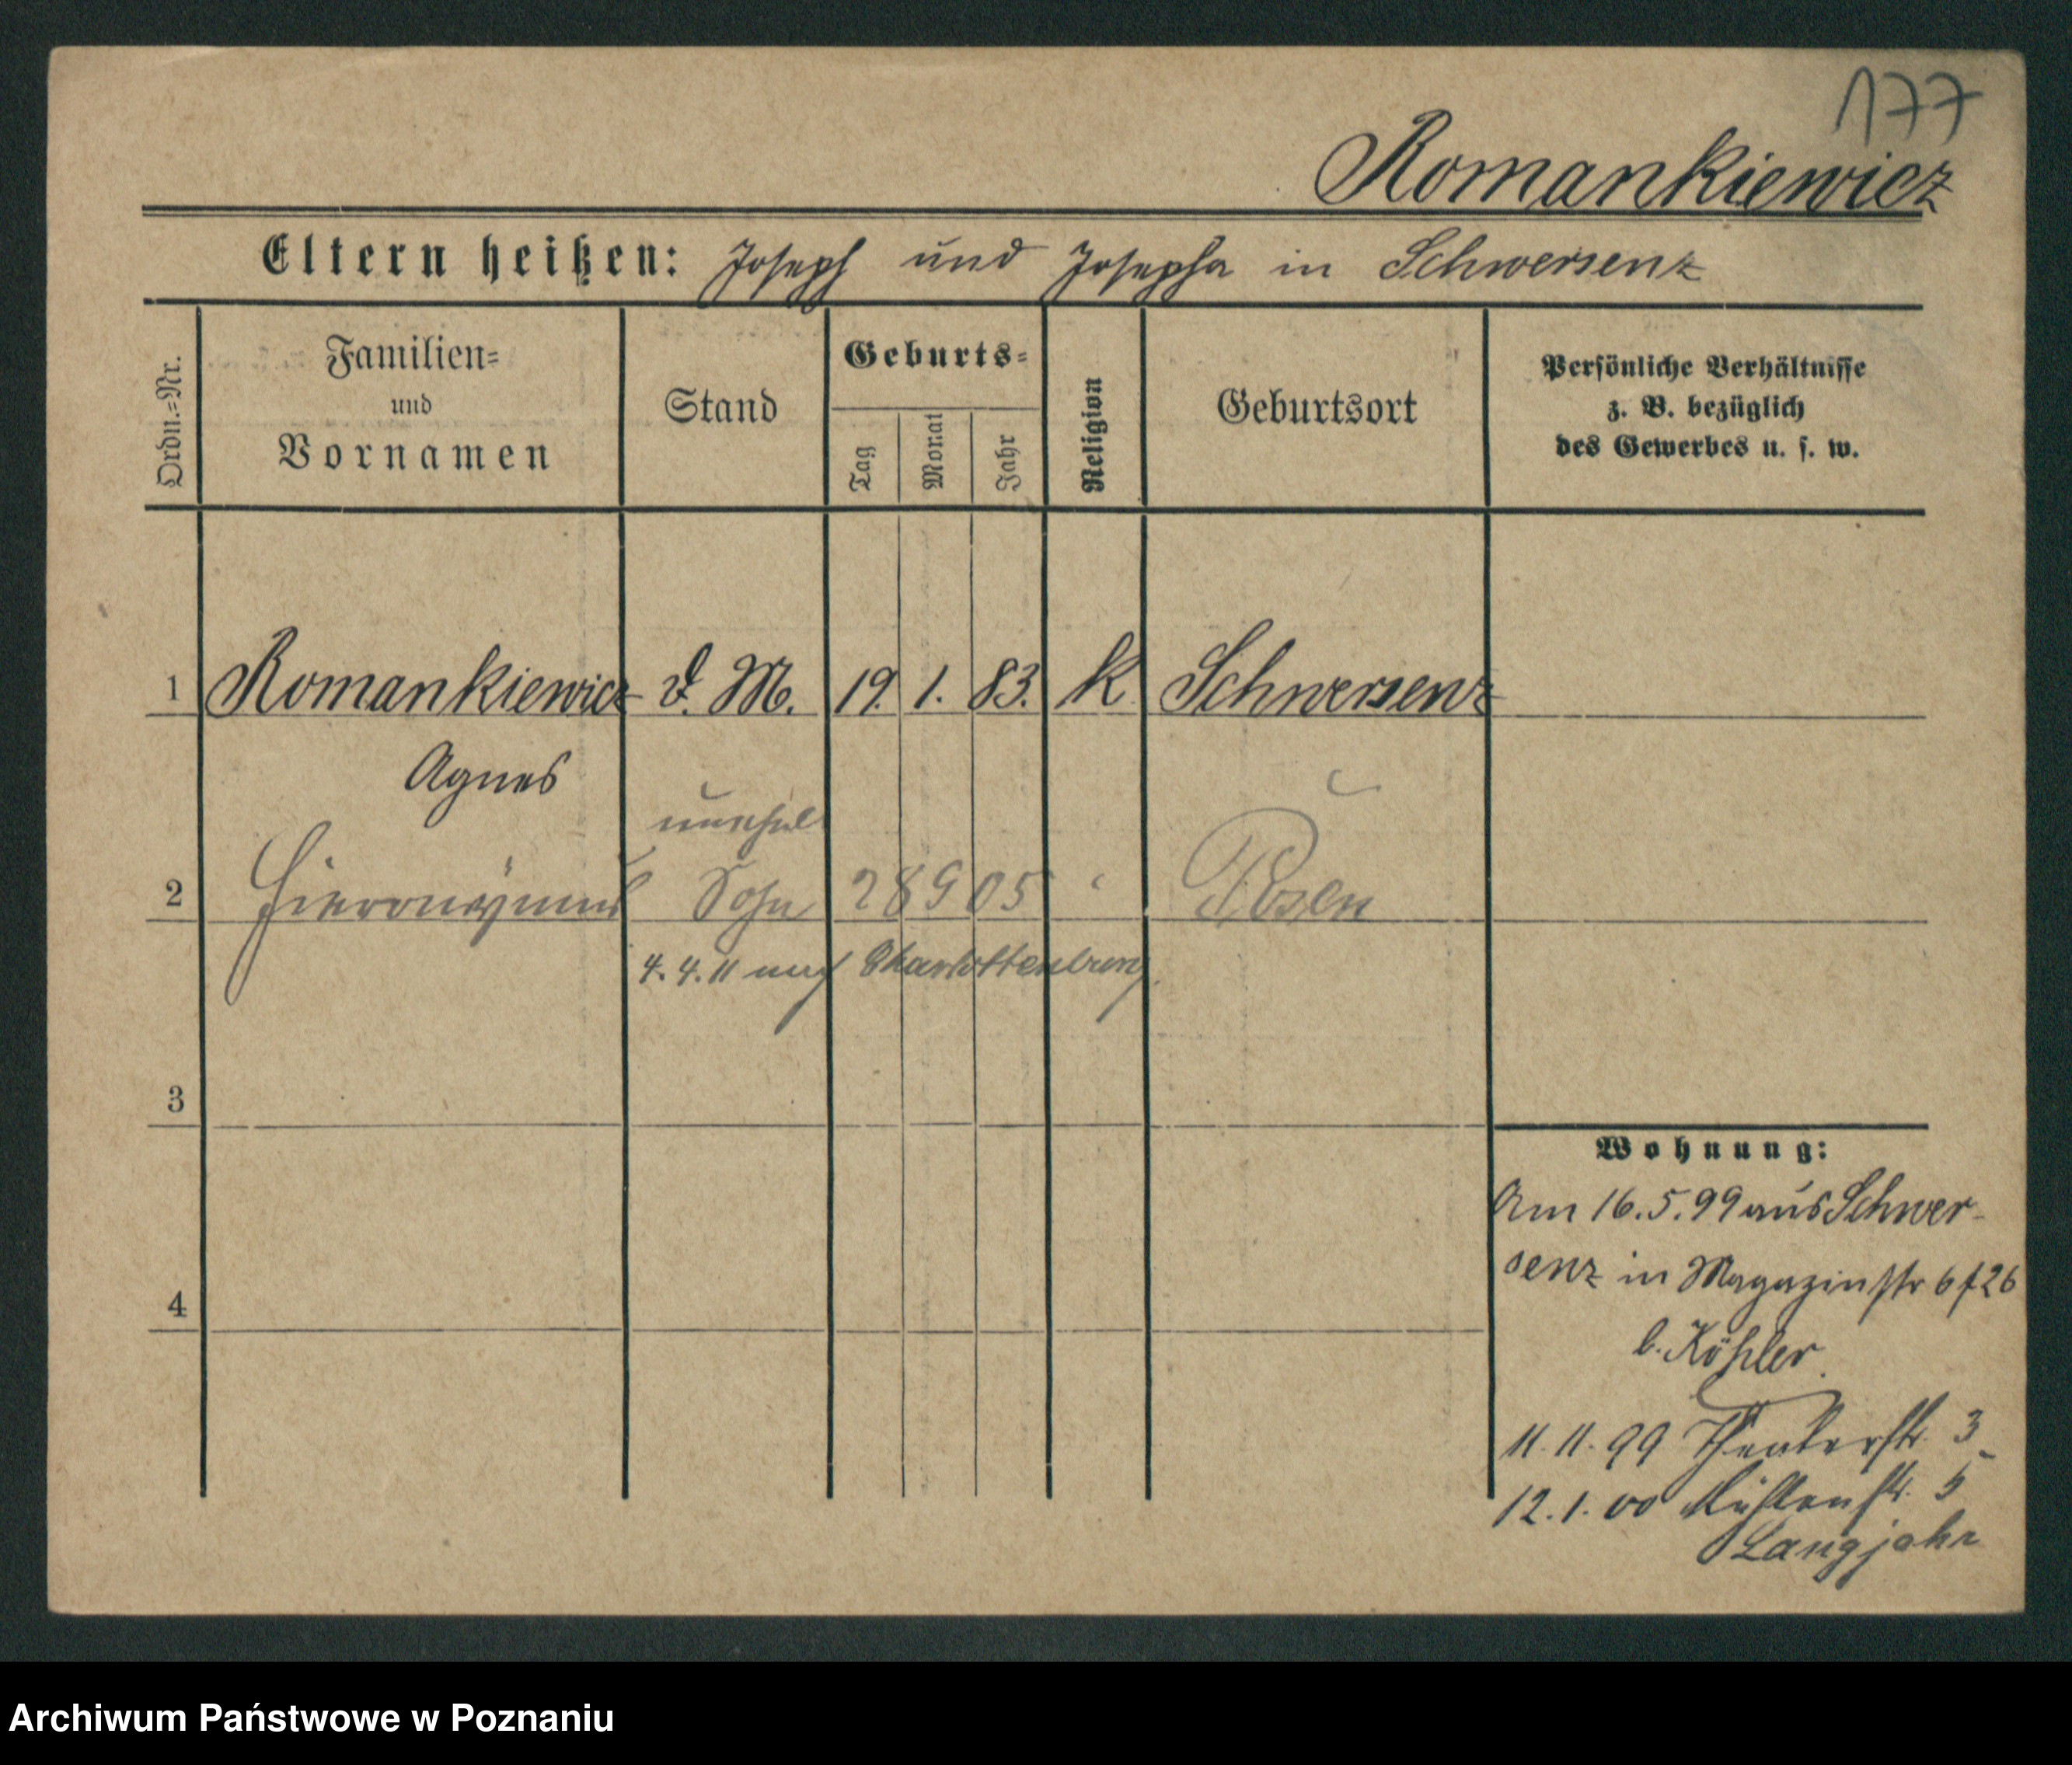 177
Romankiewicz
Eltern heißen: Joseph und Josepha in Schwersenz
Ordn.=Nr.
Familien=
und
Vornamen
Stand
Geburts=
Tag
Monat
Jahr
Religion
Geburtsort
Persönliche Verhältnisse
z. B. bezüglich
des Gewerbes u. s. w.
1 Romankiewicz d. M. 19. 1. 83. K Schwersenz
Agnes
unehel
2 Hieronymus Sohn 28 9 05 " Posen
4. 4. 11 nach Charlottenburg
3
4
Wohnung:
Am 16.5.99 aus Schwer-
senz in Magazinstr 6
b. Köhler
11.11.99 Theaterstr. 3
12.1.00 5
Langjahr
Archiwum Państwowe w Poznaniu